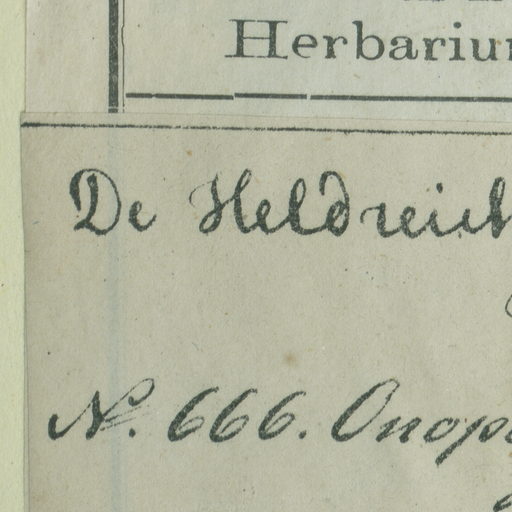 Herbariu
De Heldreich
No. 666. Onop